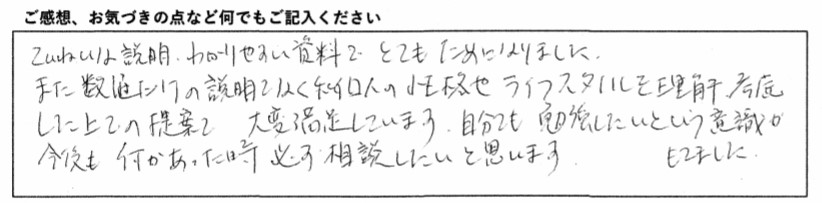 ご感想、お気づきの点など何でもご記入ください
ていねいな説明、わかりやすい資料で とてもためになりました。
また数値だけの説明でなく 私個人の性格や ライフスタイルを理解、考慮
した上での提案で 大変満足しています。自分でも勉強したいという意識が
今後も 何かあった時 必ず相談したいと思います もてました。